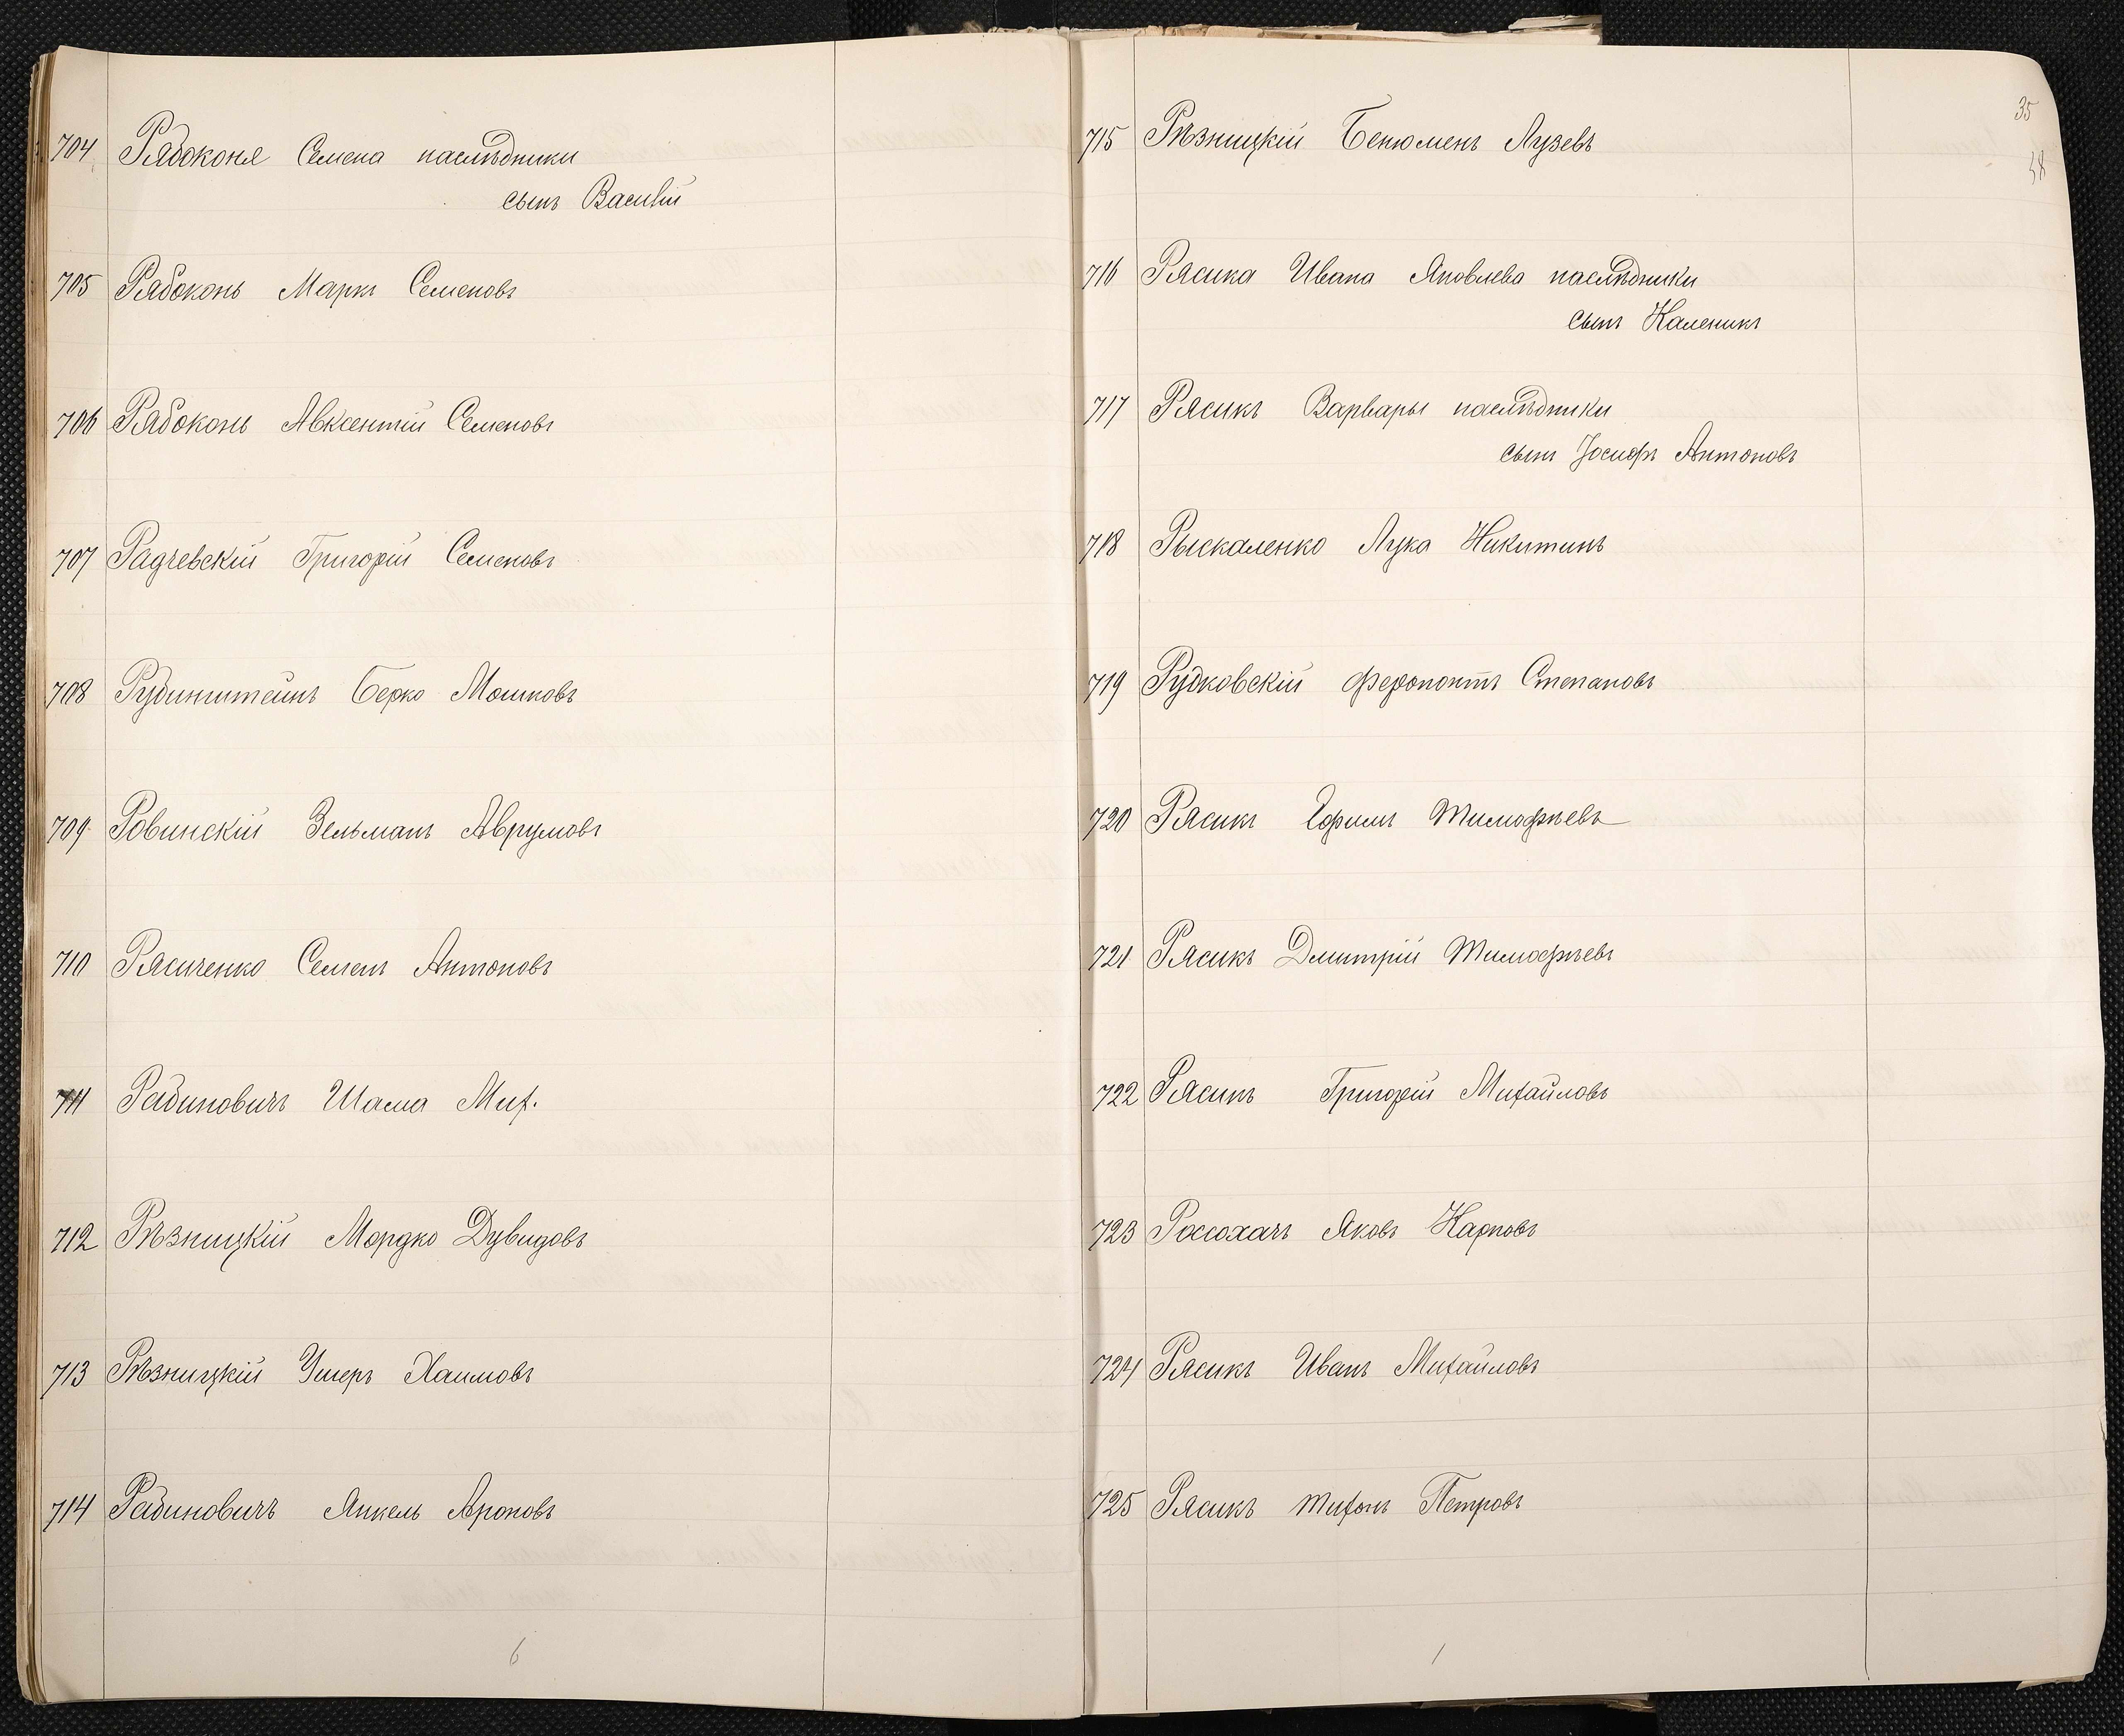 704 Рябоконя Семена наслѣдники
сынъ Василій
705 Рябоконь Маркъ Семеновъ
706 Рябоконь Авксентій Семеновъ
707 Радчевскій Григорій Семеновъ
708 Рубинштейнъ Берко Мошковъ
709 Ровинскій Зельманъ Аврумовъ
710 Рясиченко Семенъ Антоновъ
711 Рабиновичъ Шама Мих.
712 Рѣзницкій Мордко Дувидовъ
713 Рѣзницкій Ушеръ Хаимовъ
714 Рабиновичъ Янкель Ароновъ
6
35
715 Рѣзницкій Бенюменъ Лузевъ
716 Рясика Ивана Яковлева наслѣдники
сынъ Каленикъ
717 Рясикъ Варвары наслѣдники
сынъ Іосифъ Антоновъ
718 Рыскаленко Лука Никитинъ
719 Рудковскій Ферапонтъ Степановъ
720 Рясикъ Ефимъ Тимофѣевъ
721 Рясикъ Дмитрій Тимофѣевъ
722 Рясикъ Григорій Михайловъ
723 Россохачъ Яковъ Карповъ
724 Рясикъ Иванъ Михайловъ
725 Рясикъ Тихонъ Петровъ